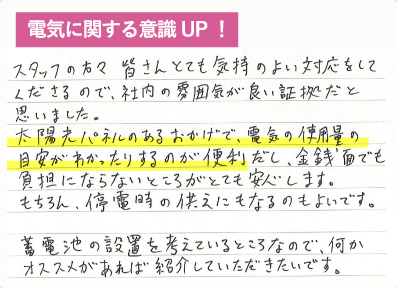 電気に関する意識 UP ！
スタッフの方々 皆さんとても気持のよい対応をして
くださるので、社内の雰囲気が良い証拠だと
思いました。
太陽光パネルのあるおかげで、電気の使用量の
目安がわかったりするのが便利だし、金銭面でも
負担にならないところがとても安心します。
もちろん、停電時の供えにもなるのもよいです。
蓄電池の設置を考えているところなので、何か
オススメがあれば紹介していただきたいです。